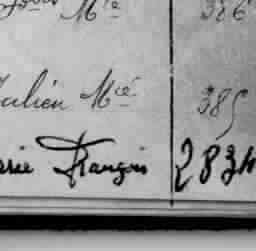 Mie 386
Julien Mie 385
rie François 2834